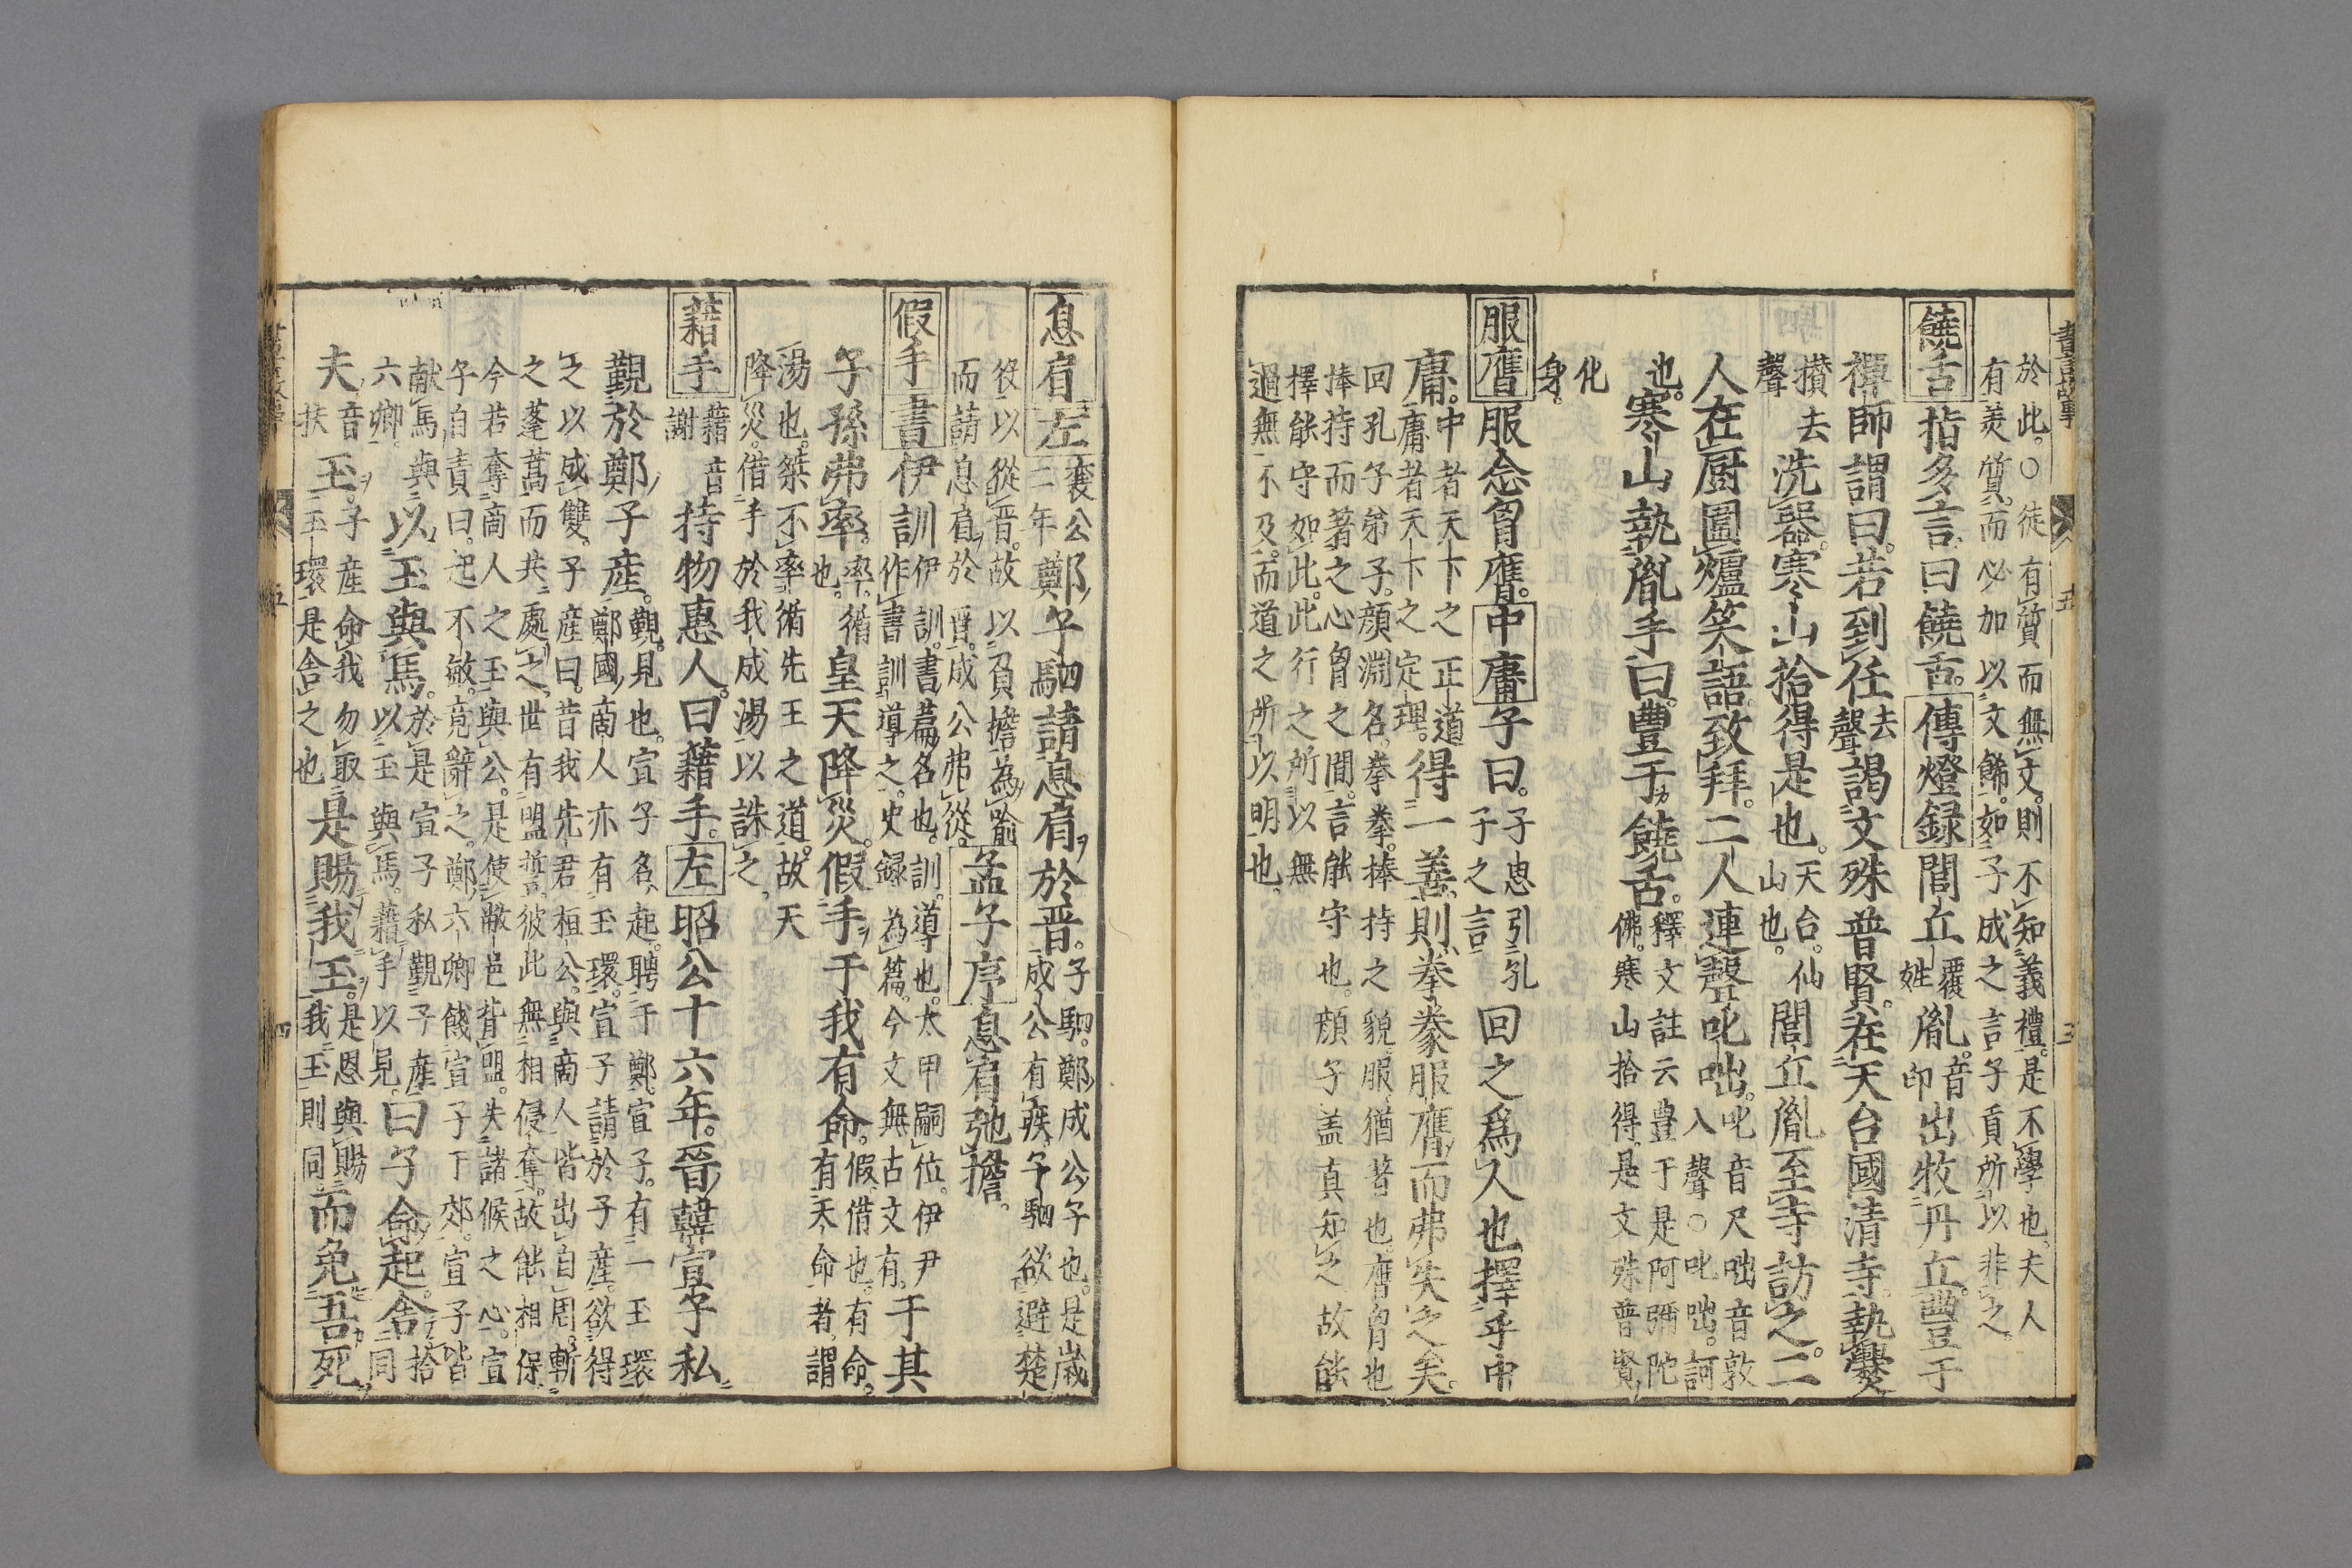 書言故事
五
三
於此○徒有質而無文則不知義禮是不學也夫人
有美質而必加以文餙如子成之言子貢所以非之
饒舌 指多言曰饒舌 傳燈録 閭丘覆姓胤音印出牧丹丘豊于
禪師謂曰若到任去聲謁文殊普賢在天台國清寺執爨
攅去聲洗器寒山拾得是也天台仙山也閭丘胤至寺訪之二
人在厨圍爐笑語致拜二人連聲叱咄叱音尺咄音敦入聲○叱咄訶
也寒山執胤手曰豊于饒舌釋文註云豊于是阿彌陀佛寒山拾得是文殊普賢
化身
服膺 服念胷膺 中庸 子曰子思引孔子之言回之爲人也擇乎中
庸中者天下之正道庸者天下之定理得一善則拳拳服膺而弗失之矣
回孔子弟子顔淵名拳拳捧持之貌服猶著也膺胷也
捧持而著之心胷之間言能守也顔子盖真知之故能
擇能守如此此行之所以無
過無不及而道之所以明也
息肩 左 襄公二年鄭子駟請息肩於晋子駟鄭成公子也是歳成公有疾子駟欲避楚
役以從晋故以負擔為喻
而請息肩於晋成公弗從 孟子序 息肩弛擔
假手 書 伊訓伊訓書篇名也訓導也太甲嗣位伊尹作書訓導之史録為篇今文無古文有于其
子孫弗率率循也皇天降災假手于我有命假借也有命有天命者謂
湯也桀不率循先王之道故天
降災借手於我成湯以誅之
藉手 藉音謝持物惠人曰藉手 左 昭公十六年晉韓宣子私
覲於鄭子産覲見也宣子名起聘于鄭宣子有一玉環鄭國商人亦有玉環宣子請於子産欲得
之以成雙子産曰昔我先君桓公與商人皆出自周斬
之蓬蒿而共處之世有盟誓彼此無相侵奪故能相保
今若奪商人之玉與公是使敝邑背盟失諸候之心宣
子自責曰起不敏竟辭之鄭六卿餞宣子于郊宣子皆
献馬與六卿以玉與馬於是宣子私覲子産以玉與馬藉手以見曰子命起舍舍同捨
夫音扶玉子産命我勿取玉環是舍之也是賜我玉是恩與賜我玉則同而免吾死
四